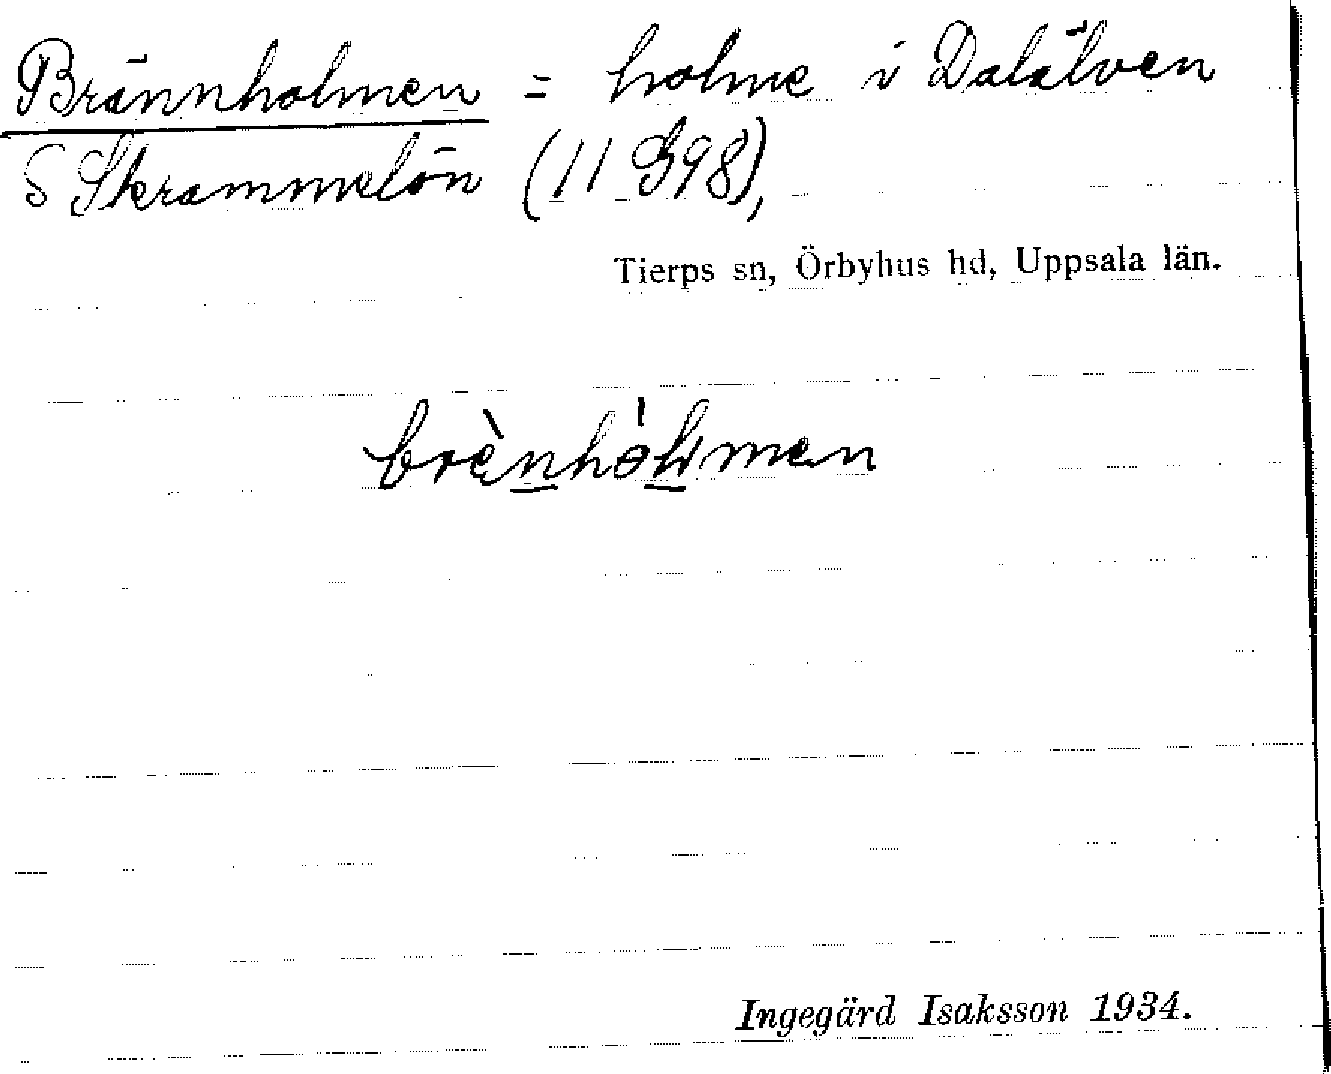 Brännholmen = holme i Dalälven
S Skrammelön (11 G98),
Tierps sn, Örbyhus hd, Uppsala län.
Ingegärd Isaksson 1934.